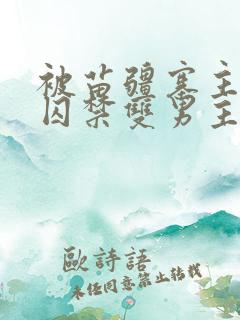 被苗疆寨主
囚禁雙男主
歐詩語
未經同意禁止轉載